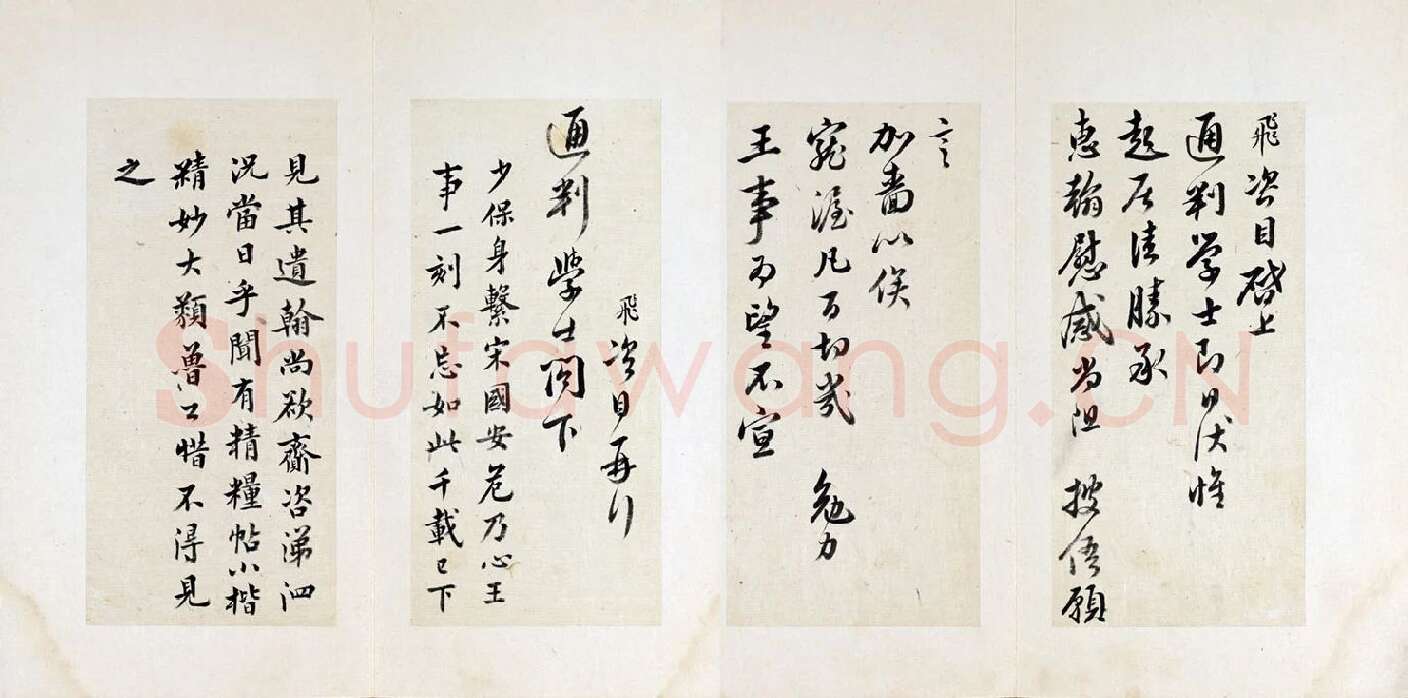 飛咨目啓上
通判学士即日伏惟
起居佳勝承
惠翰慰感尚阻 披俉願
言
加嗇以俟
寵渥凡百切幾 勉力
王事為望不宣
飛咨目再行
通判學士閤下
少保身繫宋國安危乃心王
事一刻不忘如此千載已下
見其遺翰尚欲齎咨涕泗
況當日乎聞有精糧帖小楷
精妙大類魯公惜不得見
之
Shufawang.CN